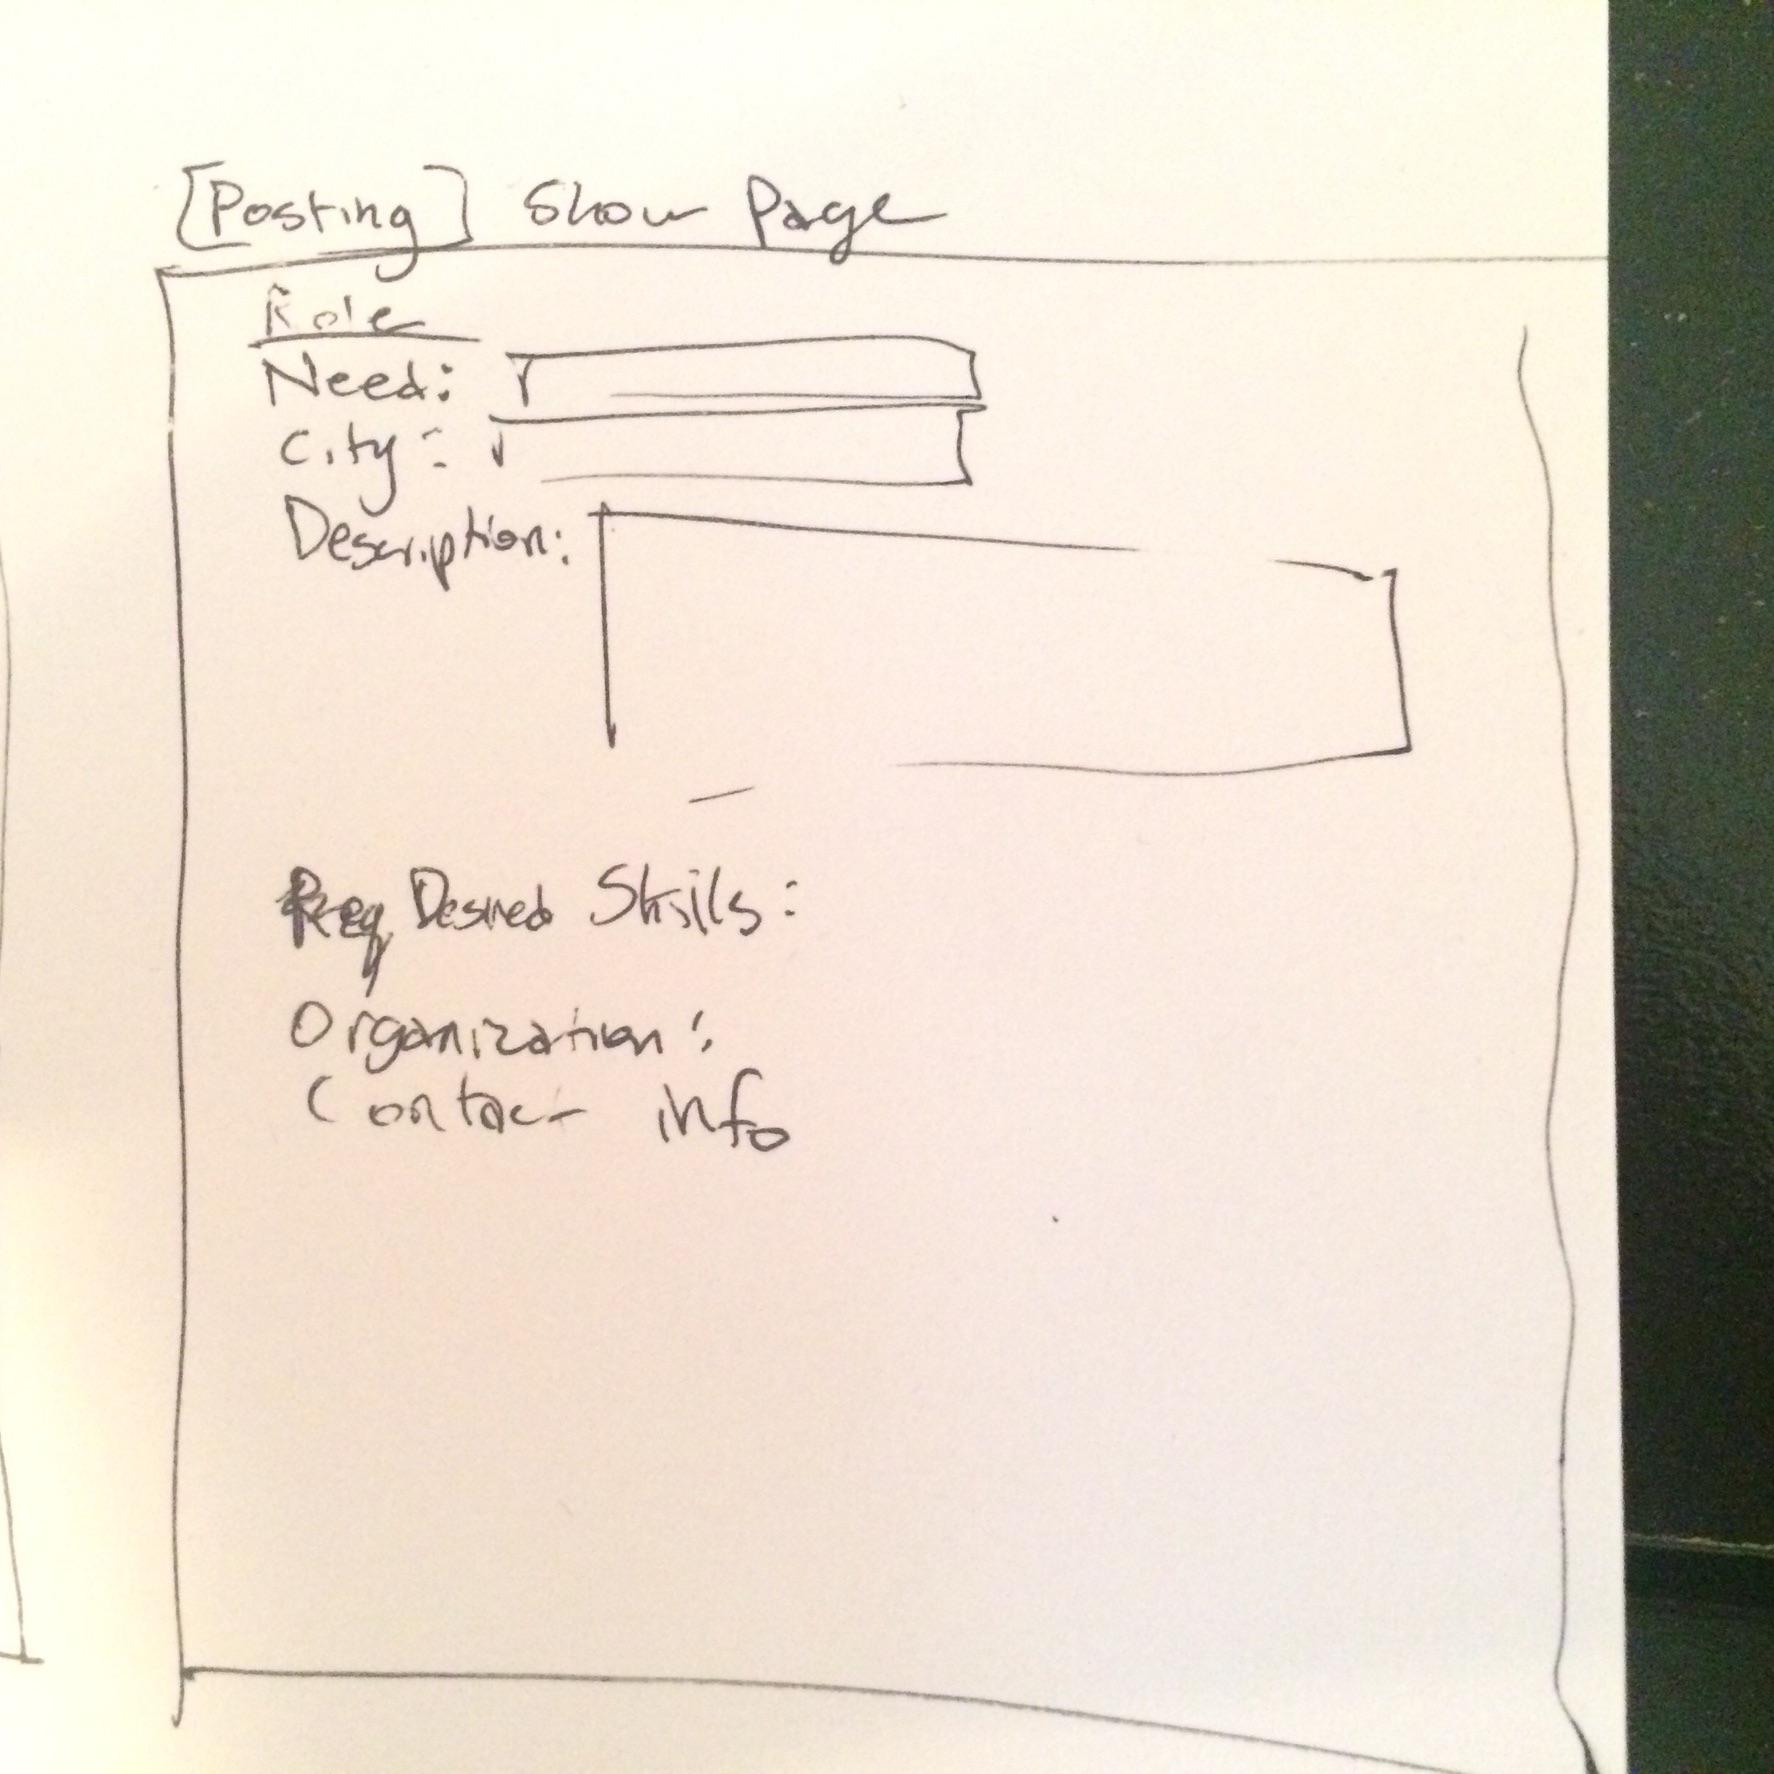 [Posting] Show Page
Role
Need:
City:
Description:
Req Desired Skills:
Organization:
Contact info